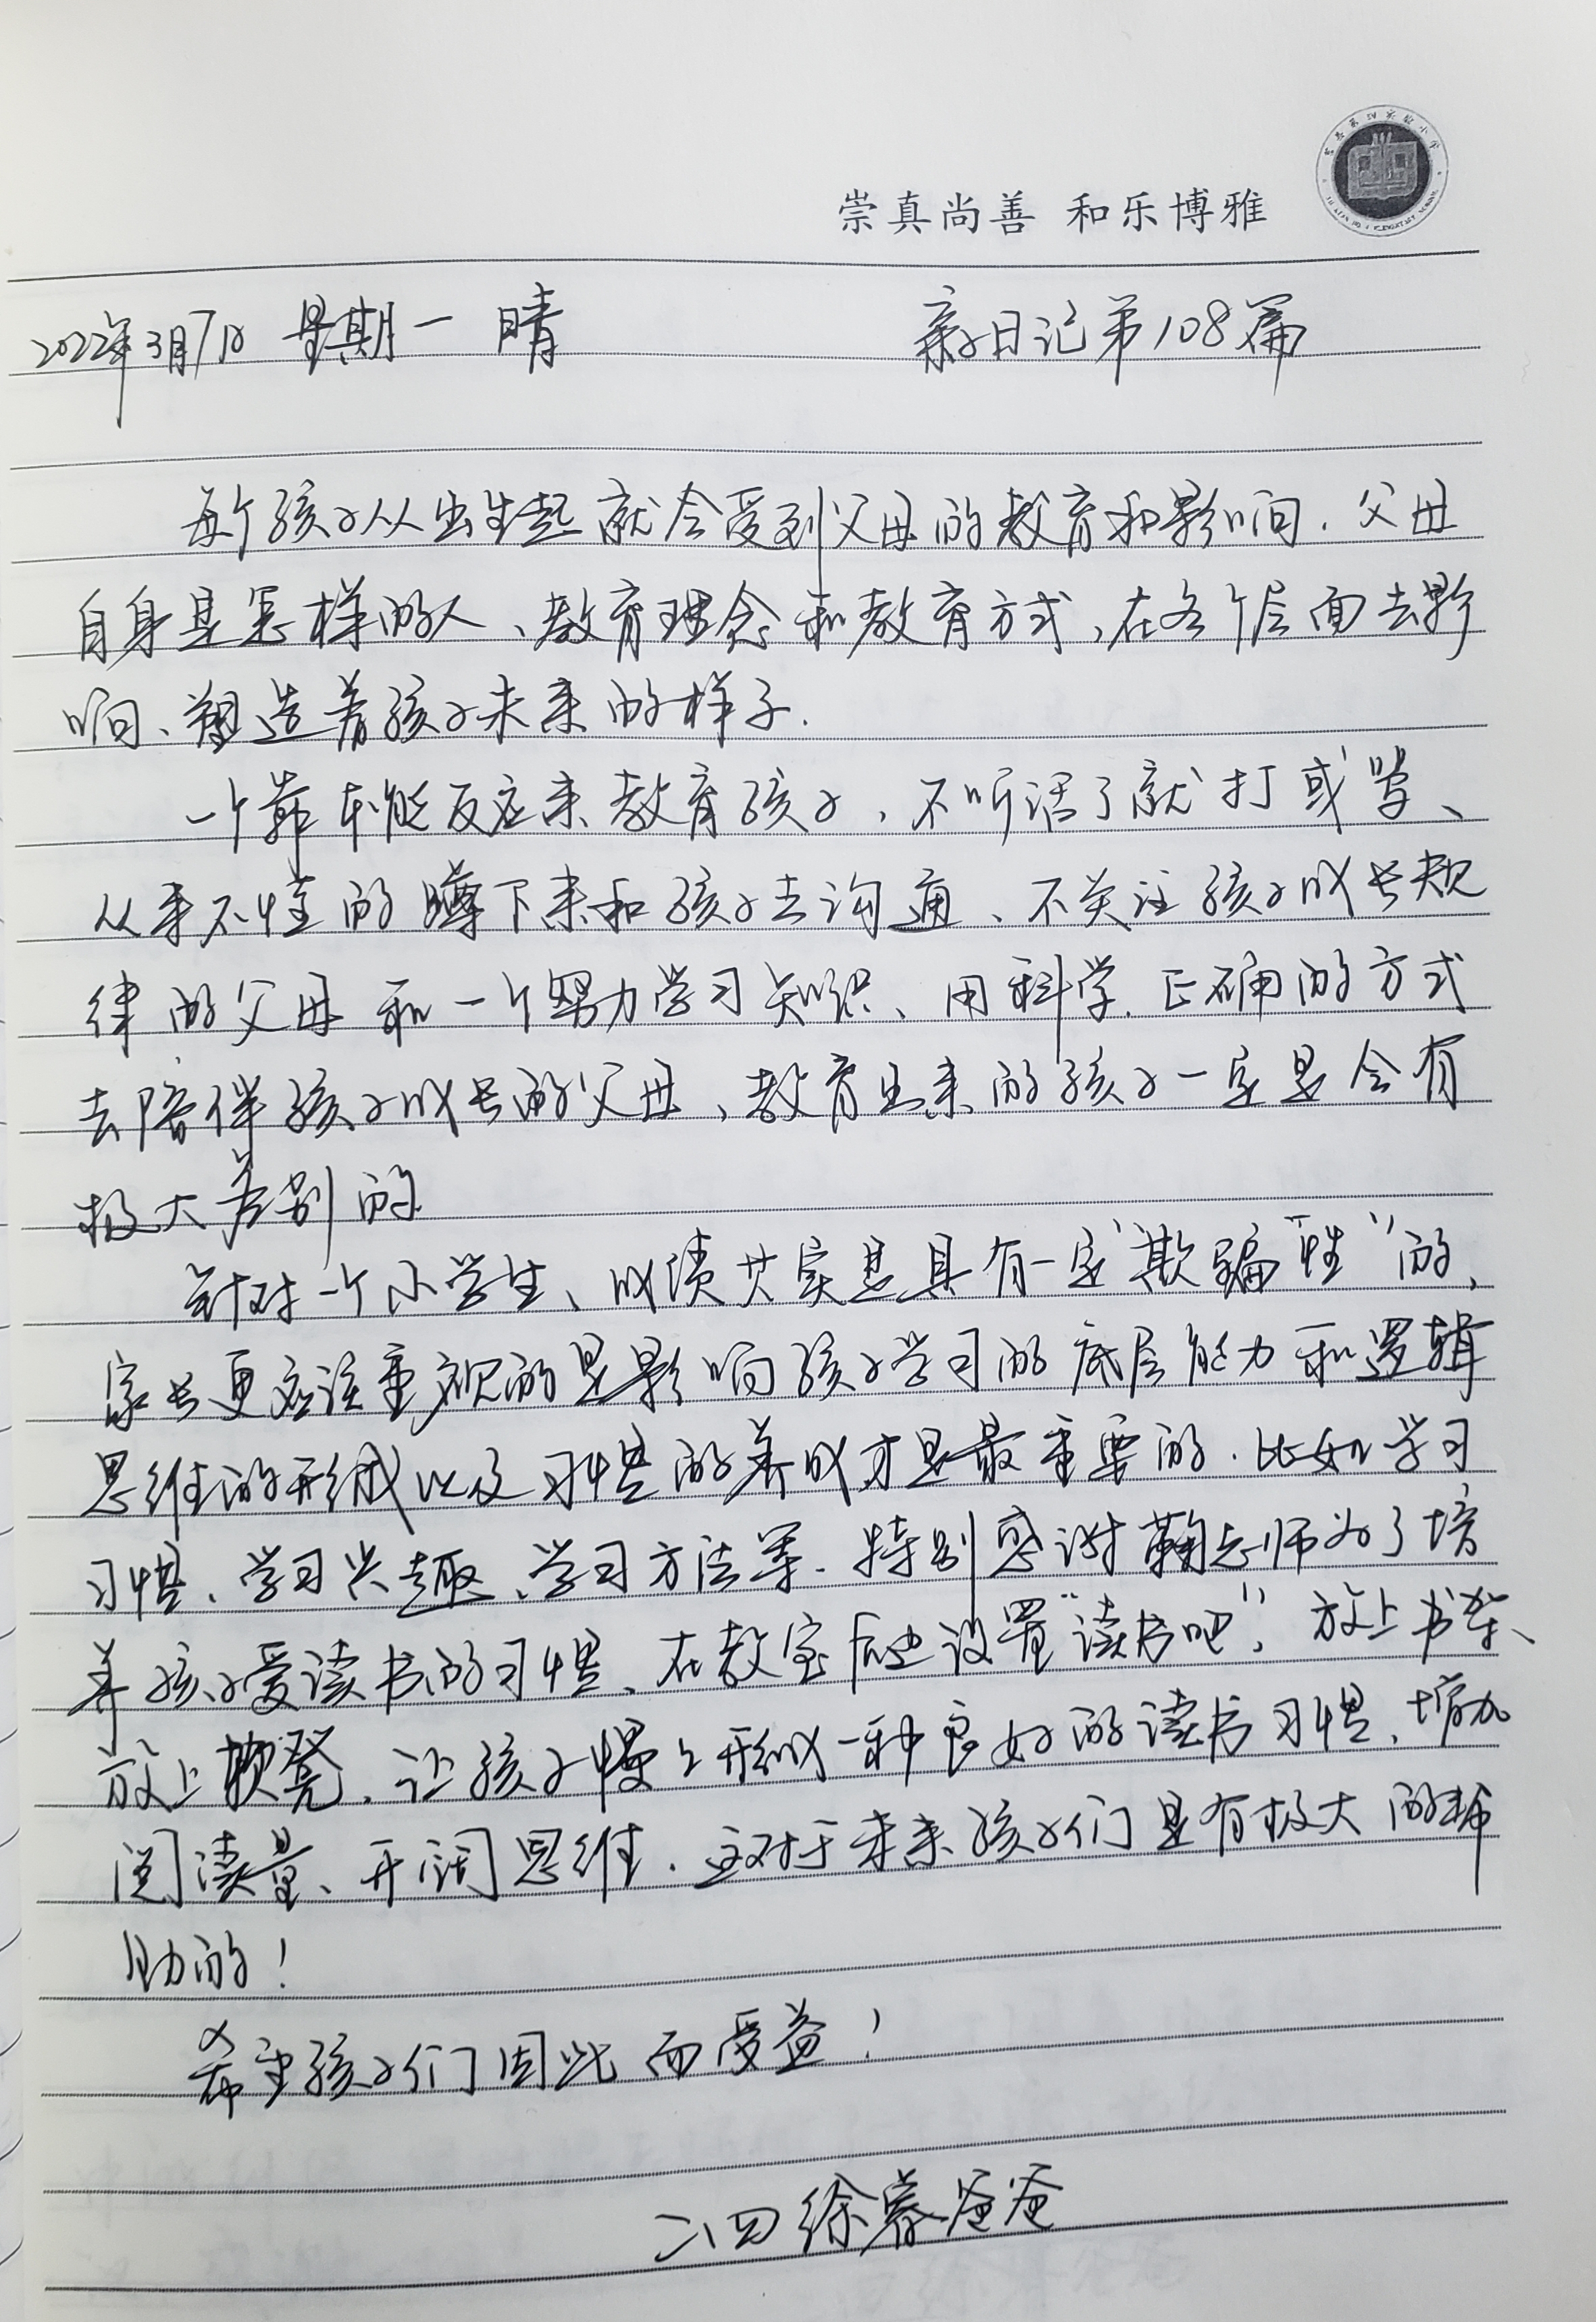 崇真尚善 和乐博雅
2022年3月7日 星期一 晴 亲子日记第108篇
每个孩子从出生起就会受到父母的教育和影响.父母
自身是怎样的人、教育理念和教育方式,在各个层面去影
响、塑造着孩子未来的样子.
一个靠本能反应来教育孩子,不听话了就打或骂、
从来不懂的蹲下来和孩子去沟通、不关注孩子成长规
律的父母和一个努力学习知识、用科学.正确的方式
去陪伴孩子成长的父母、教育出来的孩子一定是会有
极大差别的
针对一个小学生、成绩其实是具有一定"欺骗"性"的、
家长更应该重视的是影响孩子学习的底层能力和逻辑
思维的形成以及习惯的养成才是最重要的.比如学习
习惯、学习兴趣、学习方法等.特别感谢鞠老师为了培
养孩子爱读书的习惯、在教室后边设置"读书吧",放上书架、
放上软凳、让孩子慢慢形成一种良好的读书习惯、增加
阅读量、开阔思维.这对于未来孩子们是有极大的帮
助的!
希望孩子们因此而受益!
二、四 徐睿爸爸